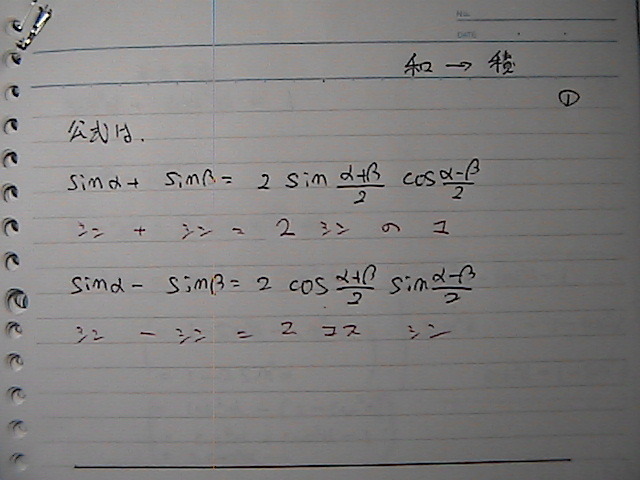 No.
DATE
和 → 積
①
公式は.
sinα + sinβ = 2 sin (α+β)/2 cos (α-β)/2
シン + シン = 2 シン の コ
sinα - sinβ = 2 cos (α+β)/2 sin (α-β)/2
シン - シン = 2 コス シン